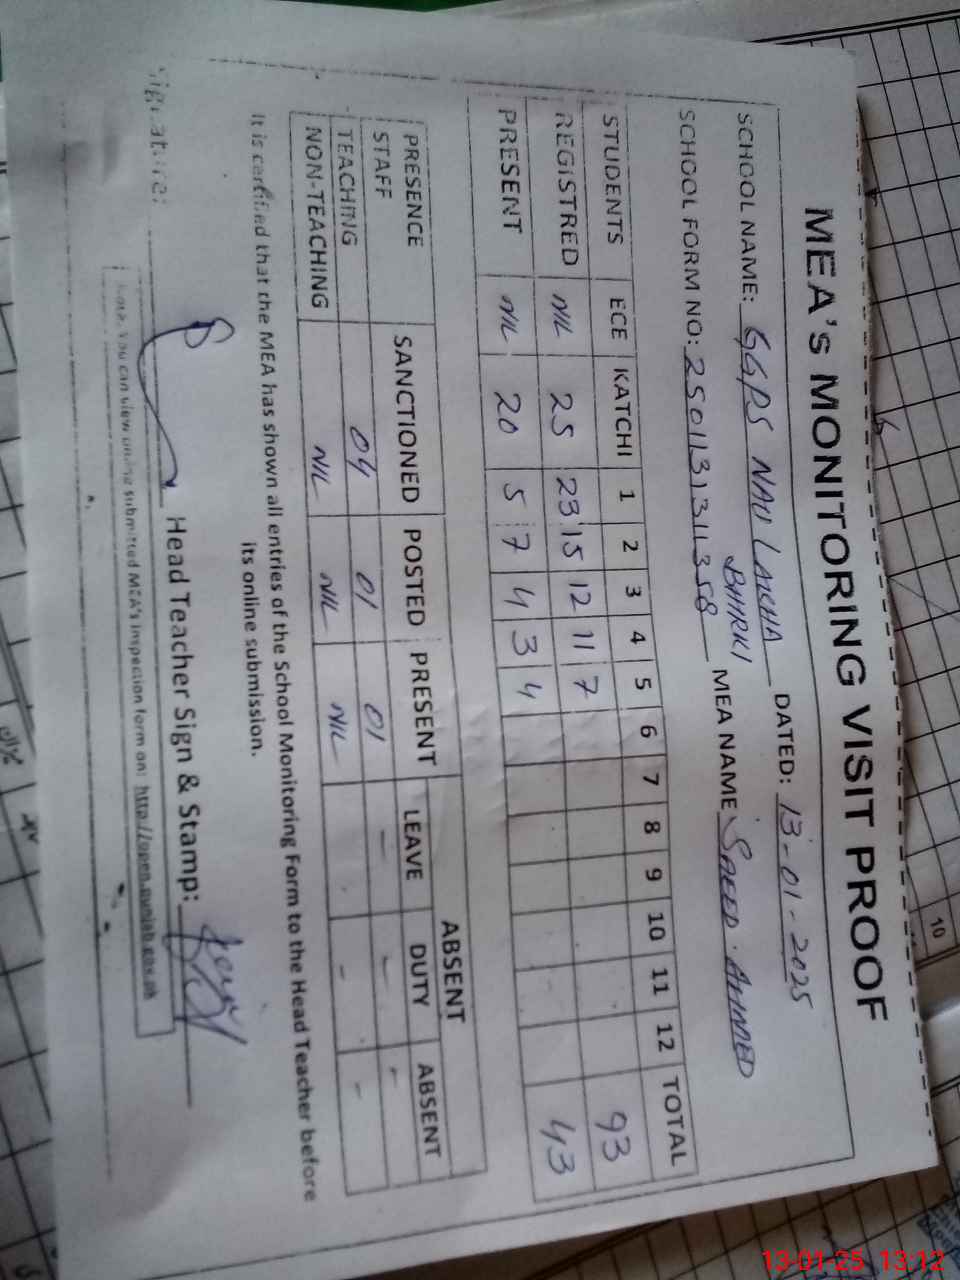 MEA's MONITORING VISIT PROOF
SCHOOL NAME: GGPS NAU LAKHA BHIRKI DATED: 13-01-2025
SCHOOL FORM NO: 25011313111358 MEA NAME SAEED AHMED
STUDENTS ECE KATCHI 1 2 3 4 5 6 7 8 9 10 11 12 TOTAL
REGISTRED NIL 25 23 15 12 11 7 93
PRESENT NIL 20 5 7 4 3 4 43
PRESENCE SANCTIONED POSTED PRESENT ABSENT
STAFF LEAVE DUTY ABSENT
TEACHING 04 01 01 - - -
NON-TEACHING NIL NIL NIL - - -
It is certified that the MEA has shown all entries of the School Monitoring Form to the Head Teacher before
its online submission.
Signature: Head Teacher Sign & Stamp:
You can view online submitted MEA's inspection form on: http://open.punjab.gov.pk
10
13-01-25 13:12